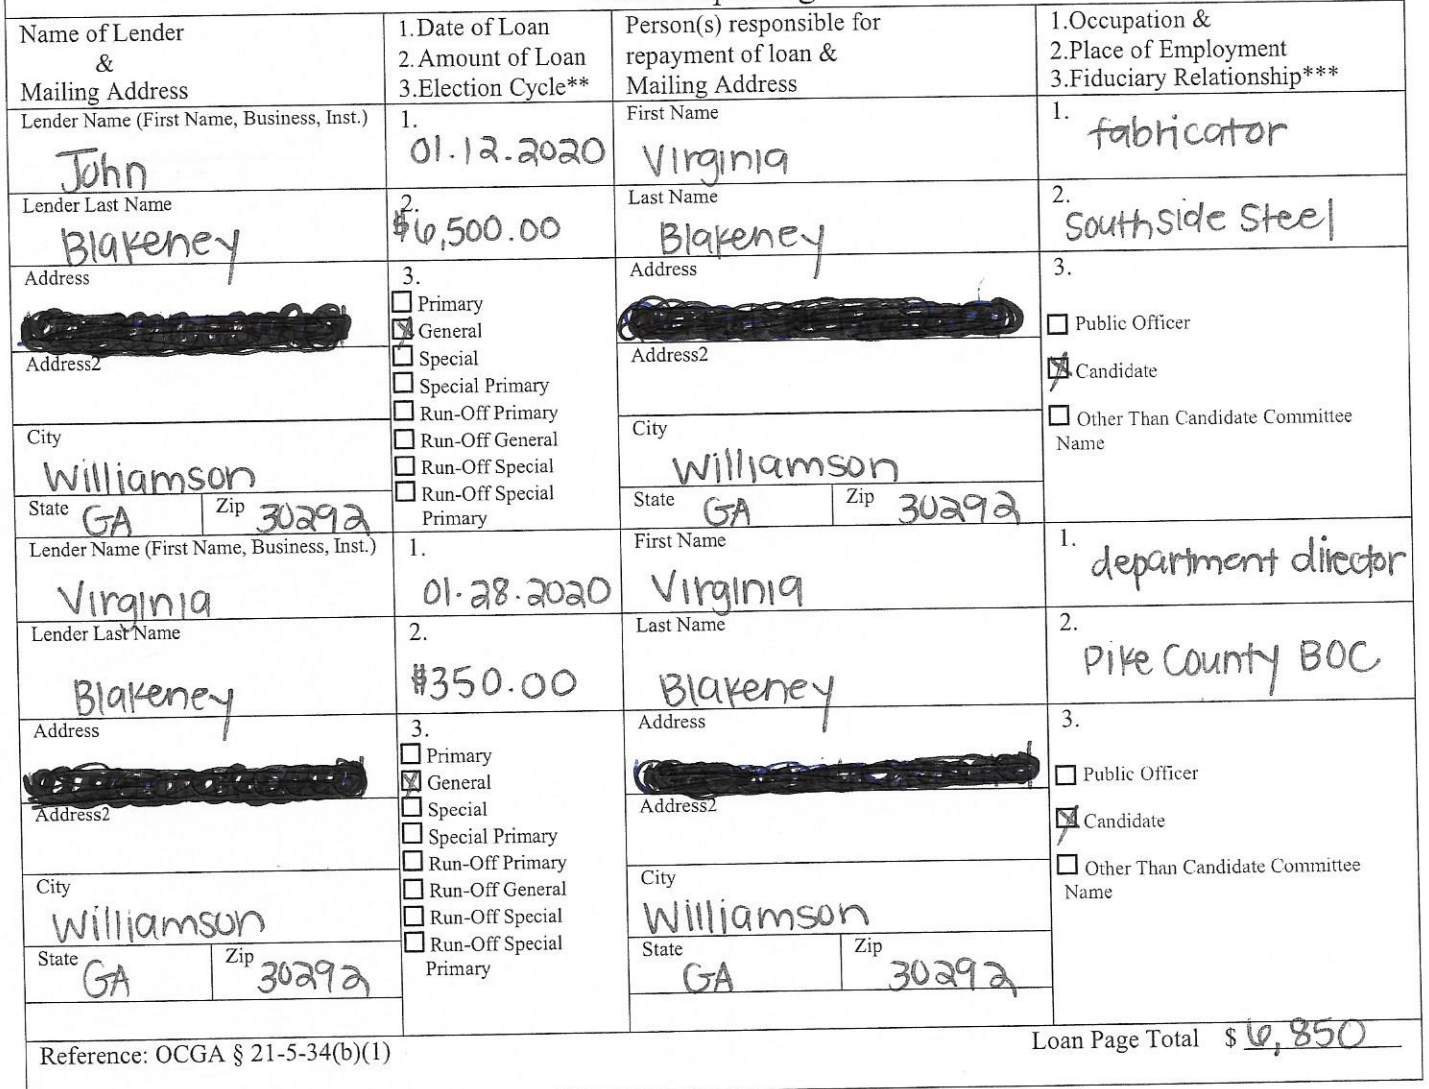 Name of Lender
&
Mailing Address
1.Date of Loan
2.Amount of Loan
3.Election Cycle**
Person(s) responsible for
repayment of loan &
Mailing Address
1.Occupation &
2.Place of Employment
3.Fiduciary Relationship***
Lender Name (First Name, Business, Inst.)
John
1.
01.12.2020
First Name
Virginia
1.
fabricator
Lender Last Name
Blakeney
2.
$6,500.00
Last Name
Blakeney
2.
Southside Steel
Address
Address2
City
Williamson
State GA
Zip 30292
3.
Primary
General
Special
Special Primary
Run-Off Primary
Run-Off General
Run-Off Special
Run-Off Special
Primary
Address
Address2
City
Williamson
State GA
Zip 30292
3.
Public Officer
Candidate
Other Than Candidate Committee
Name
Lender Name (First Name, Business, Inst.)
Virginia
1.
01.28.2020
First Name
Virginia
1.
department director
Lender Last Name
Blakeney
2.
$350.00
Last Name
Blakeney
2.
Pike County BOC
Address
Address2
City
Williamson
State GA
Zip 30292
3.
Primary
General
Special
Special Primary
Run-Off Primary
Run-Off General
Run-Off Special
Run-Off Special
Primary
Address
Address2
City
Williamson
State GA
Zip 30292
3.
Public Officer
Candidate
Other Than Candidate Committee
Name
Reference: OCGA § 21-5-34(b)(1)
Loan Page Total $ 6,850